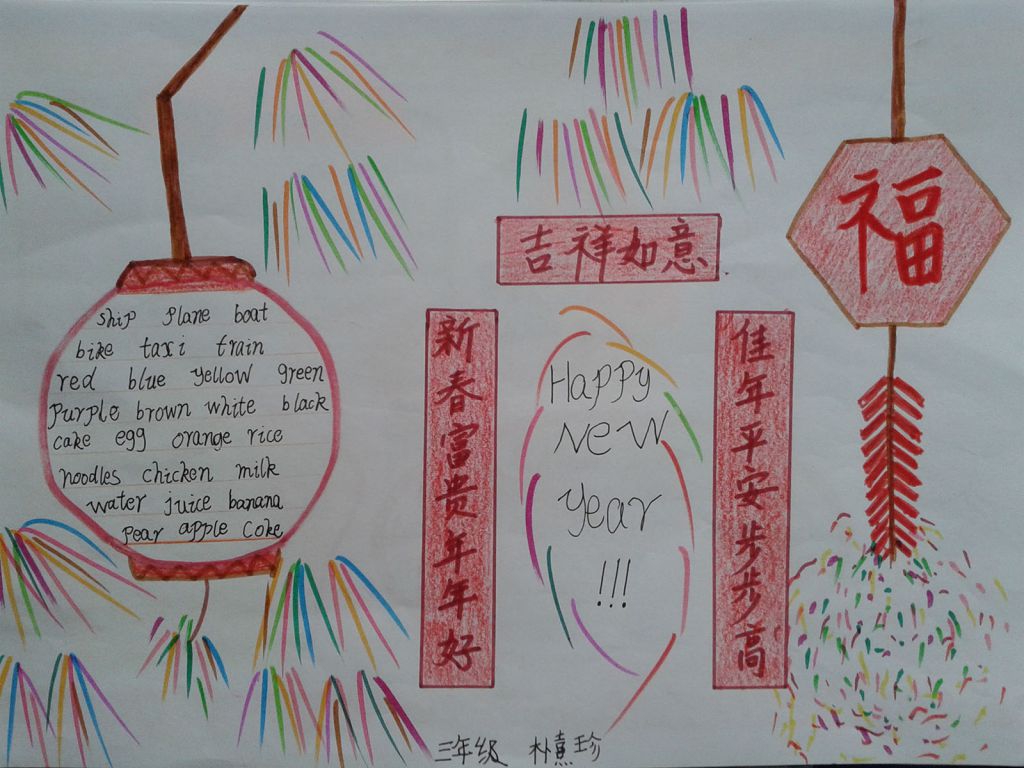 ship plane boat
bike taxi train
red blue yellow green
purple brown white black
cake egg orange rice
noodles chicken milk
water juice banana
pear apple coke
吉祥如意
新春富贵年年好
Happy
New
Year
!!!
佳年平安步步高
福
三年级 朴熹珍